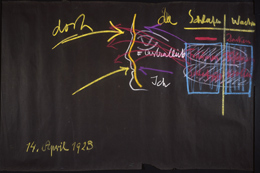 dort
da
Schlafen
Wachen
Ich
14. April 1923